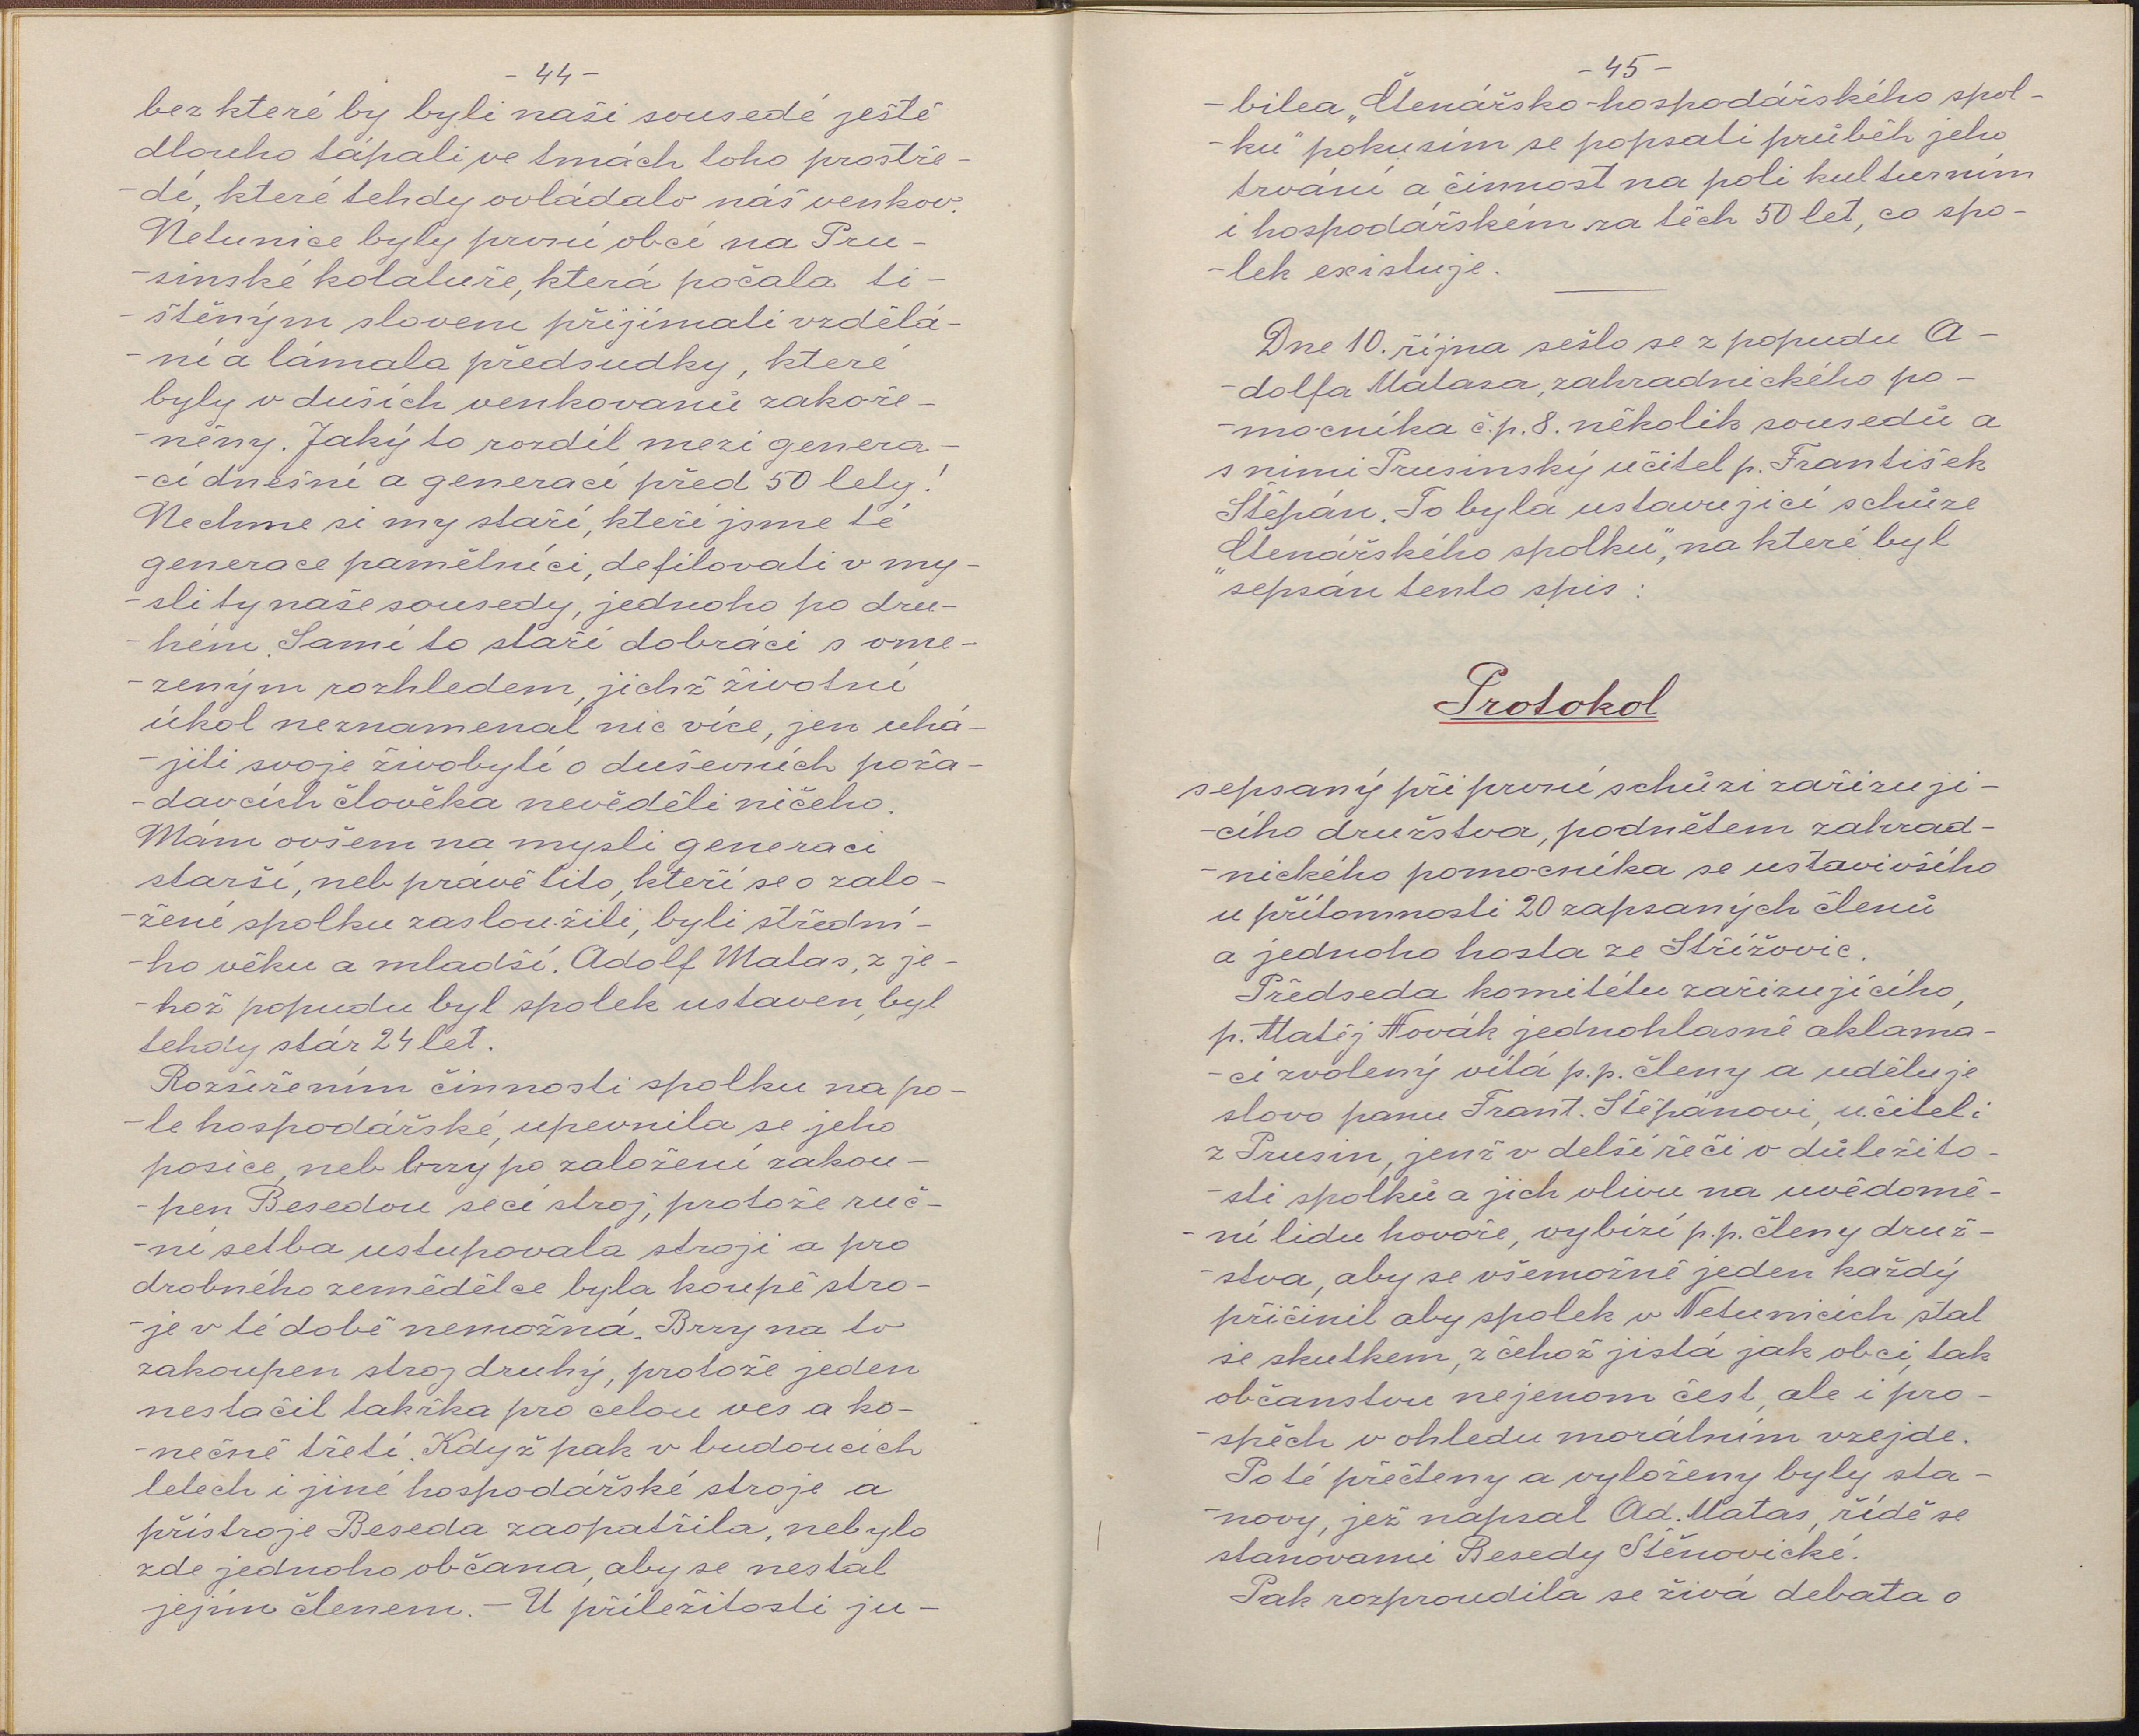 - 44 -
bez které by byli naši sousedé ještě
dlouho tápali ve tmách toho prostře-
-dí, které tehdy ovládalo náš venkov.
Netunice byly první obcí na Pru-
-sinské kolatuře, která počala ti-
-štěným slovem přijímati vzdělá-
-ní a lámala předsudky, které
byly v duších venkovanů zakoře-
-něny. Jaký to rozdíl mezi genera-
-cí dnešní a generací před 50 lety!
Nechme si my staří, kteří jsme té
generace pamětníci, defilovati v my-
-sli ty naše sousedy, jednoho po dru-
-hém. Samí to staří dobráci s ome-
-zeným rozhledem, jichž životní
úkol neznamenal nic více, jen uhá-
-jiti svoje živobytí o duševních poža-
-davcích člověka nevěděli ničeho.
Mám ovšem na mysli generaci
starší, neb právě tito, kteří se o zalo-
-žení spolku zasloužili, byli střední-
-ho věku a mladší. Adolf Matas, z je-
-hož popudu byl spolek ustaven, byl
tehdy stár 24 let.
Rozšířením činnosti spolku na po-
-le hospodářské, upevnila se jeho
posice, neb brzy po založení zakou-
-pen Besedou secí stroj, protože ruč-
-ní setba ustupovala stroji a pro
drobného zemědělce byla koupě stro-
-je v té době nemožná. Brzy na to
zakoupen stroj druhý, protože jeden
nestačil takřka pro celou ves a ko-
-nečně třetí. Když pak v budoucích
letech i jiné hospodářské stroje a
přístroje Beseda zaopatřila, nebylo
zde jednoho občana, aby se nestal
jejím členem. - U příležitosti ju-
- 45 -
-bilea „Čtenářsko-hospodářského spol-
-ku" pokusím se popsati průběh jeho
trvání a činnost na poli kulturním
i hospodářském za těch 50 let, co spo-
-lek existuje.
Dne 10. října sešlo se z popudu A-
-dolfa Matasa, zahradnického po-
-mocníka č.p. 8. několik sousedů a
s nimi Prusinský učitel p. František
Štěpán. To byla ustavující schůze
„Čtenářského spolku", na které byl
sepsán tento spis:
Protokol
sepsaný při první schůzi zařizují-
-cího družstva, podnětem zahrad-
-nického pomocníka se ustavivšího
u přítomnosti 20 zapsaných členů
a jednoho hosta ze Střížovic.
Předseda komitétu zařizujícího,
p. Matěj Novák jednohlasně aklama-
-cí zvolený vítá p.p. členy a uděluje
slovo panu Frant. Štěpánovi, učiteli
z Prusin, jenž v delší řeči o důležito-
-sti spolků a jich vlivu na uvědomě-
-ní lidu hovoře, vybízí p.p. členy druž-
-stva, aby se všemožně jeden každý
přičinil aby spolek v Netunicích stal
se skutkem, z čehož jistá jak obci, tak
občanstvu nejenom čest, ale i pro-
-spěch v ohledu morálním vzejde.
Poté přečteny a vyloženy byly sta-
-novy, jež napsal Ad. Matas, řídě se
stanovami Besedy Štěnovické.
Pak rozproudila se živá debata o